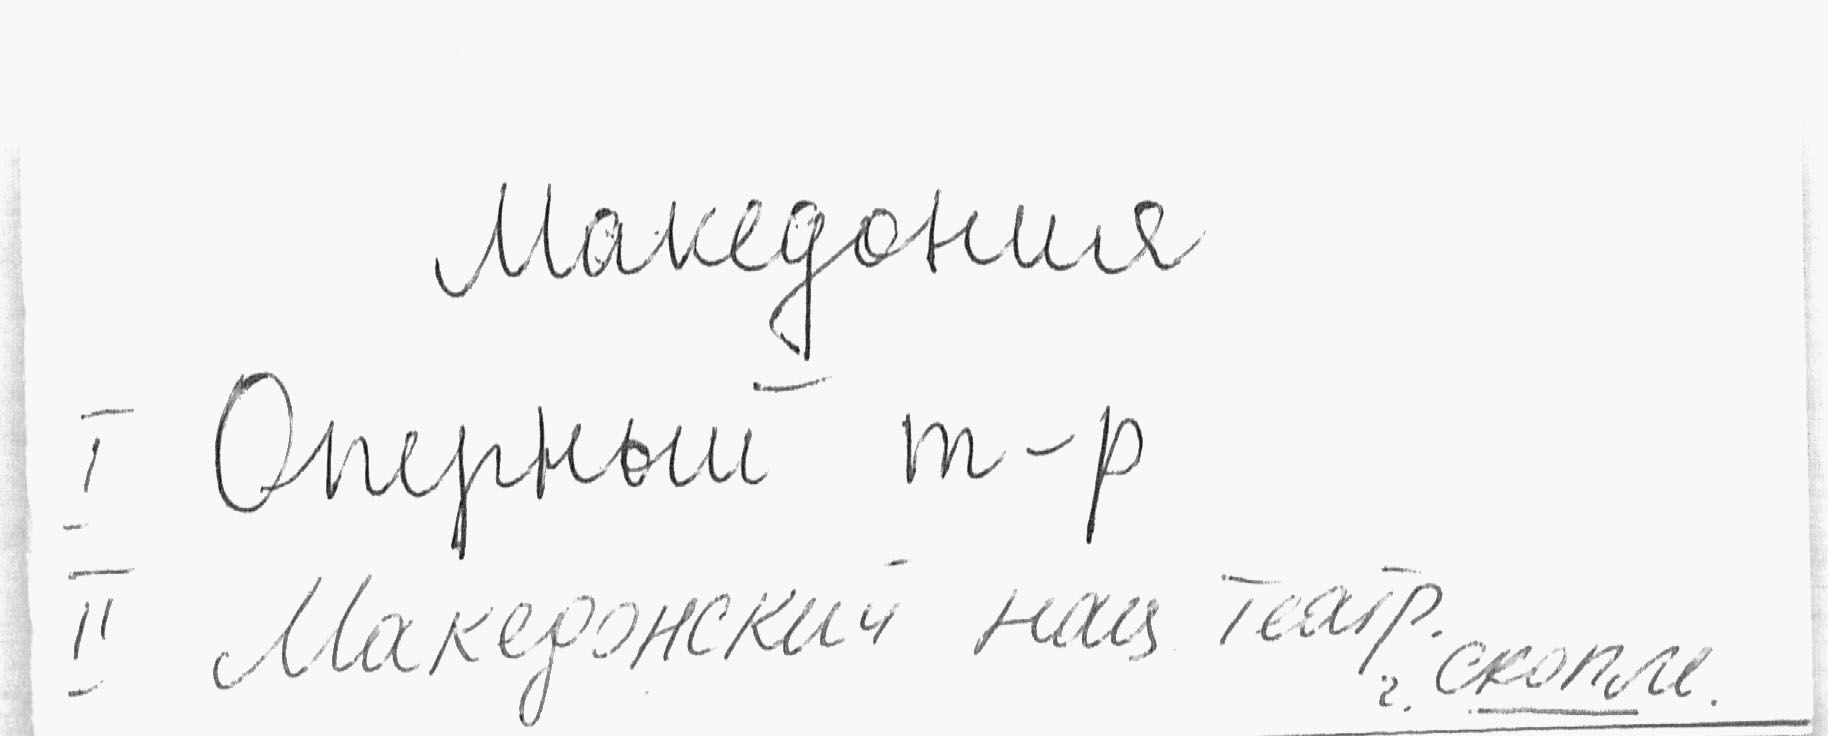 Македония
I Оперный т-р
II Македонский нац театр.
г. Скопле.